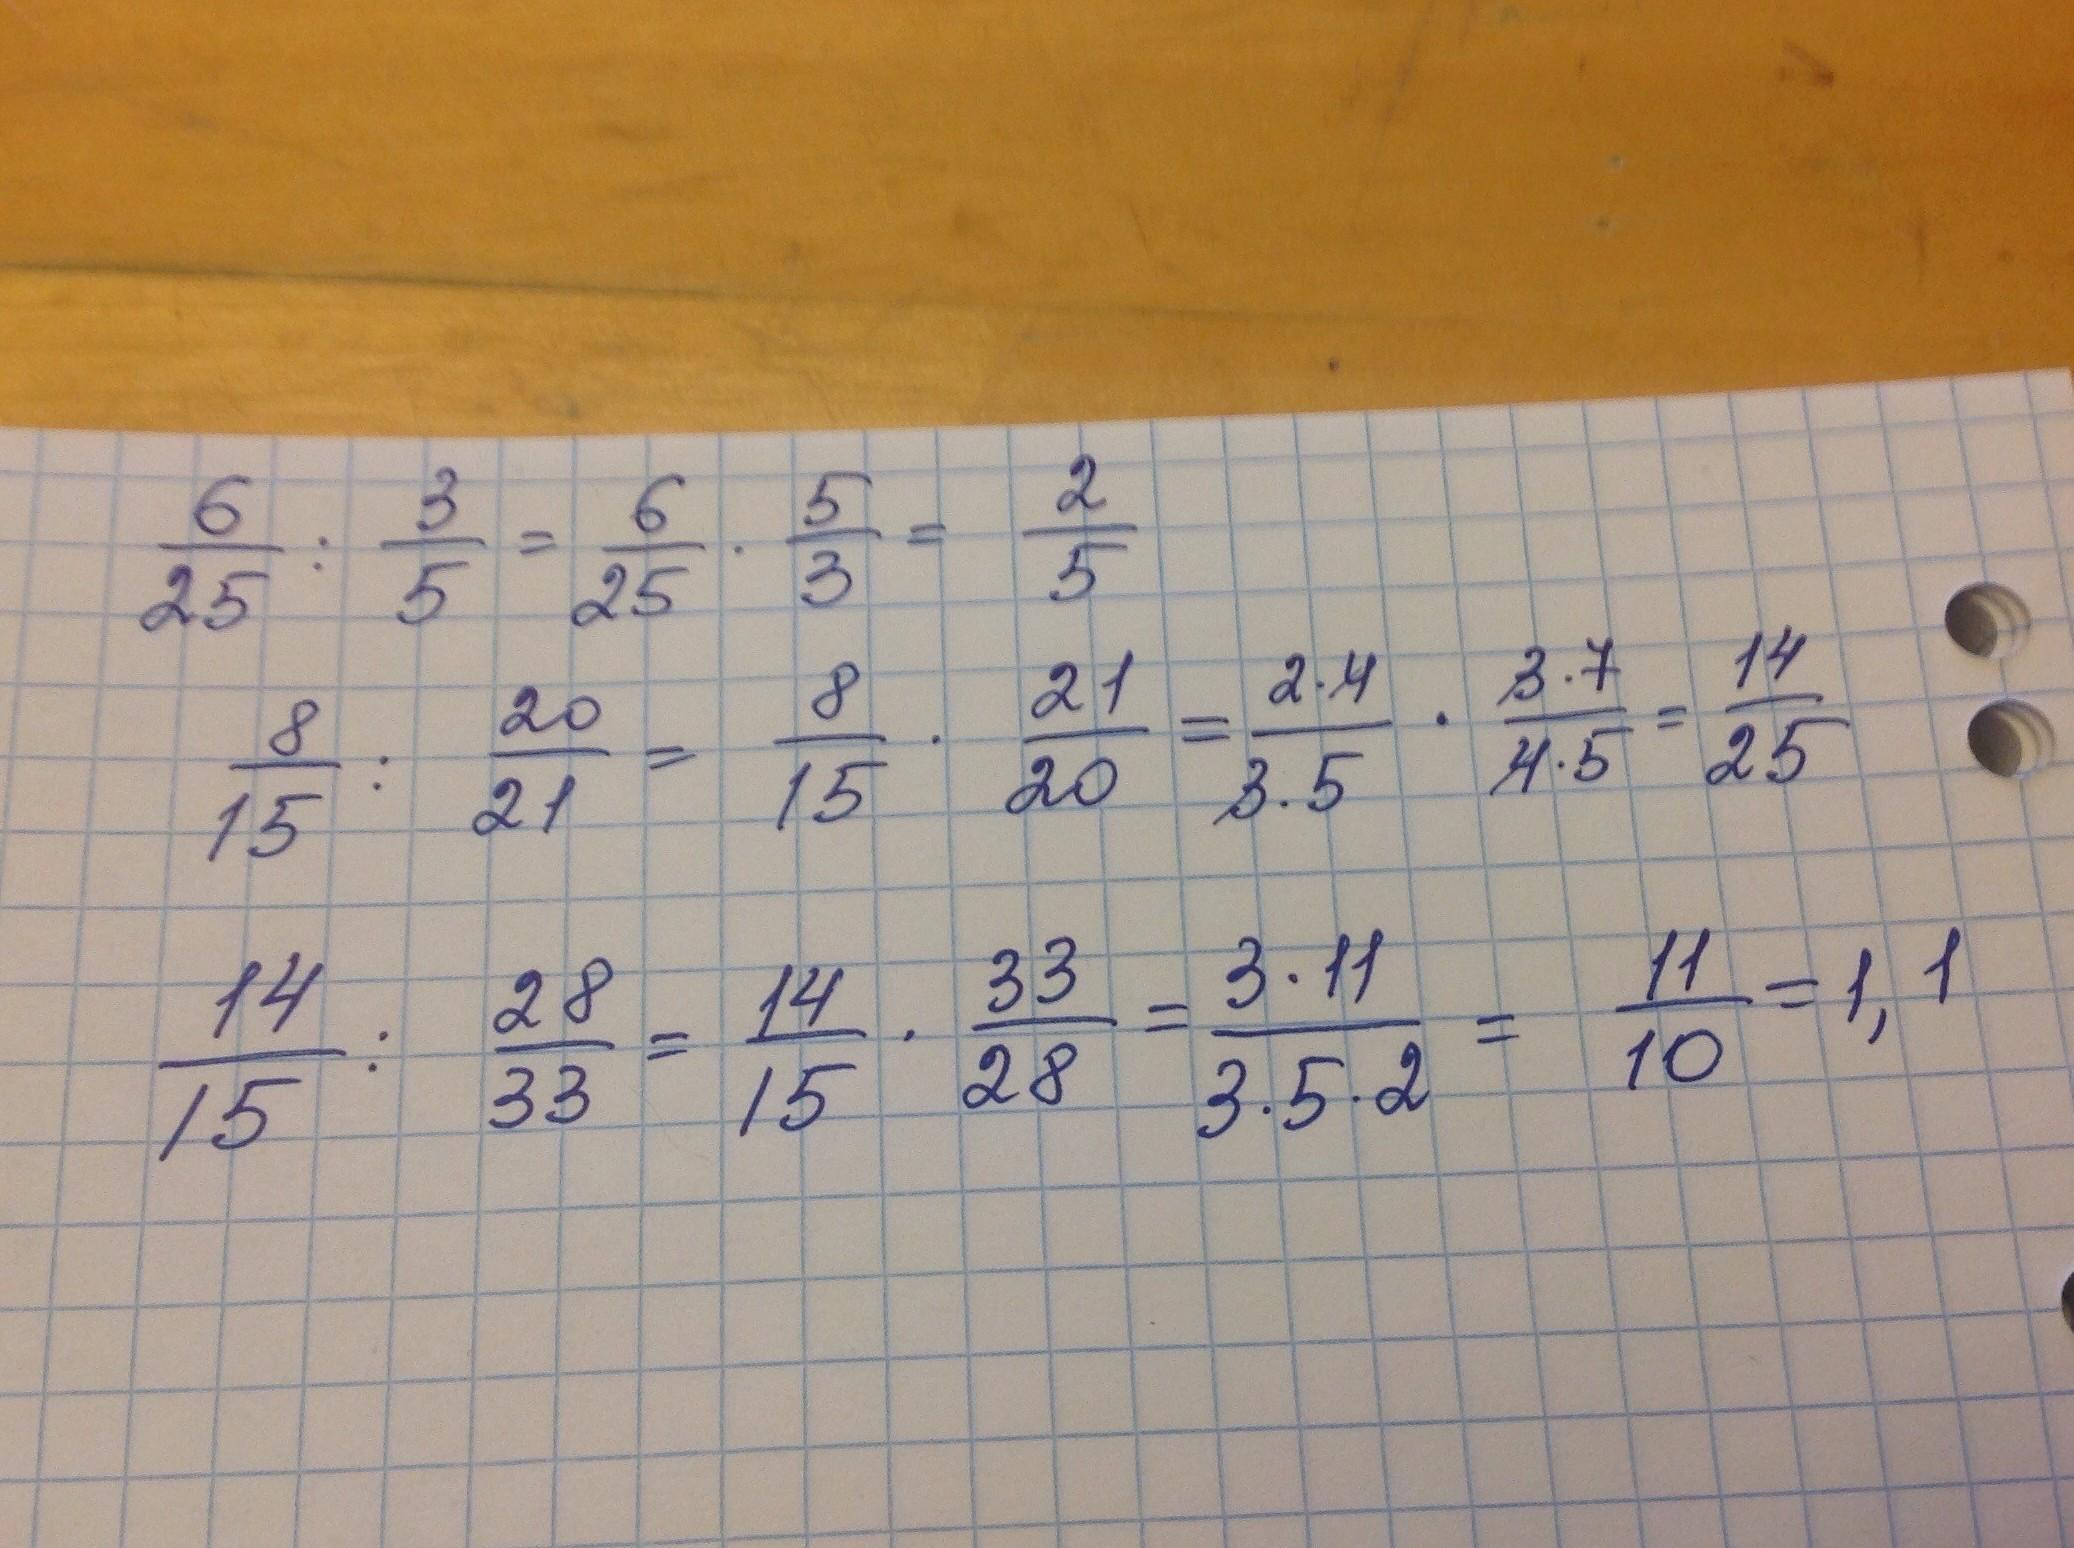 6/25 : 3/5 = 6/25 · 5/3 = 2/5
8/15 : 20/21 = 8/15 · 21/20 = 2·4/3·5 · 3·7/4·5 = 14/25
14/15 : 28/33 = 14/15 · 33/28 = 3·11/3·5·2 = 11/10 = 1,1